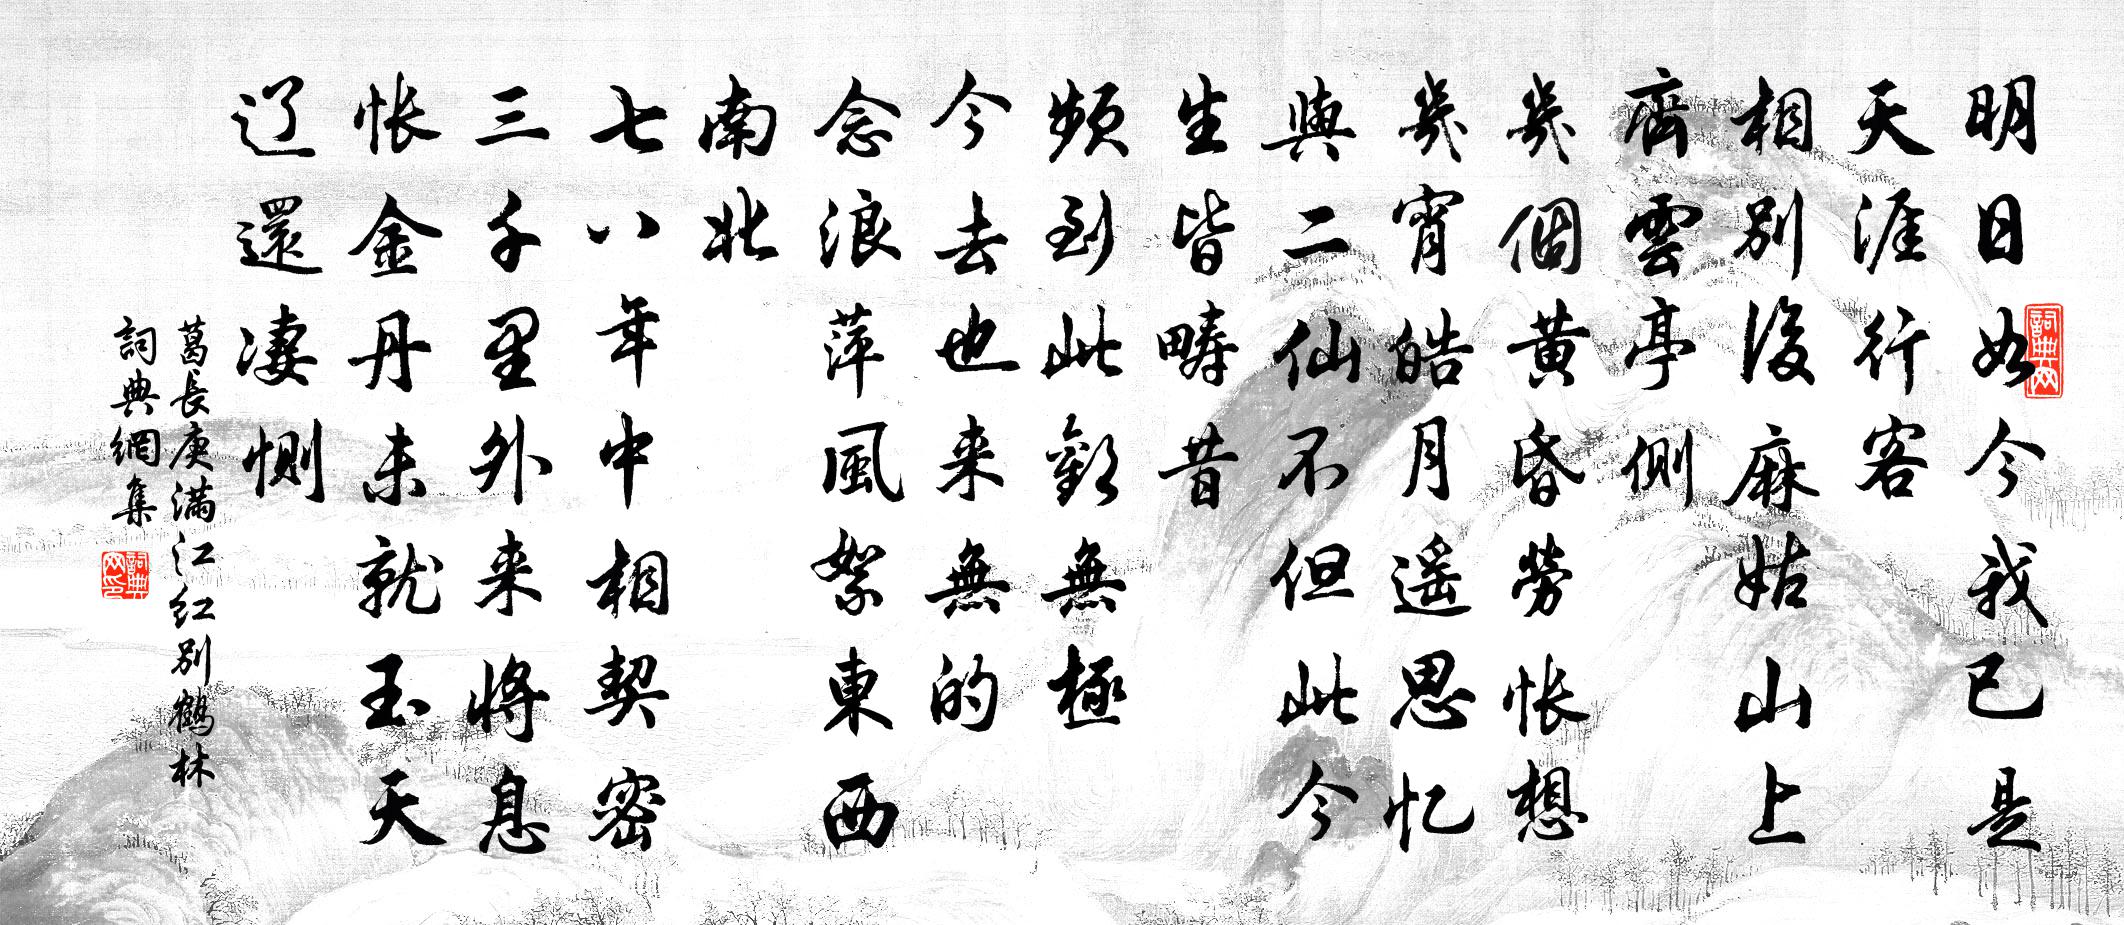 明日如今我已是
天涯行客
相別後麻姑山上
齊雲亭側
幾個黃昏勞悵想
幾宵皓月遙思忆
與二仙不但此今
生皆疇昔
頻到此歡無極
今去也来無的
念浪萍風絮東西
南北
七八年中相契密
三千里外来將息
悵金丹未就玉天
辽還凄惻
葛長庚满江红别鶴林
詞典網集
詞典网
詞典网印